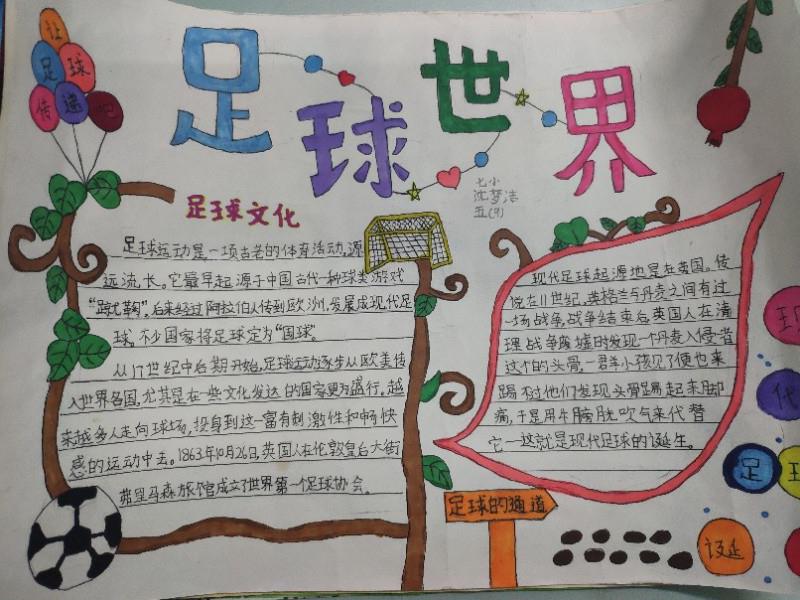 足球世界
让
足球
传递吧
足球文化
七小
沈梦洁
五(9)
足球运动是一项古老的体育活动,源
远流长。它最早起源于中国古代一种球类游戏
“蹴鞠”,后来经过阿拉伯人传到欧洲,发展成现代足
球,不少国家将足球定为“国球”。
从17世纪中后期开始,足球运动逐步从欧美传
入世界各国,尤其是在一些文化发达的国家更为盛行。越
来越多人走向球场,投身到这一富有刺激性和畅快
感的运动中去。1863年10月26日,英国人在伦敦皇后大街
弗里马森旅馆成立了世界第一个足球协会。
现代足球起源地是在英国。传
说在11世纪,英格兰与丹麦之间有过
一场战争,战争结束后英国人在清
理战争废墟时发现一个丹麦入侵者
的头骨,一群小孩见了便也来
踢不过他们发现头骨踢起来脚
痛,于是用牛膀胱吹气来代替
它—这就是现代足球的诞生。
足球的通道
现
代
足
诞